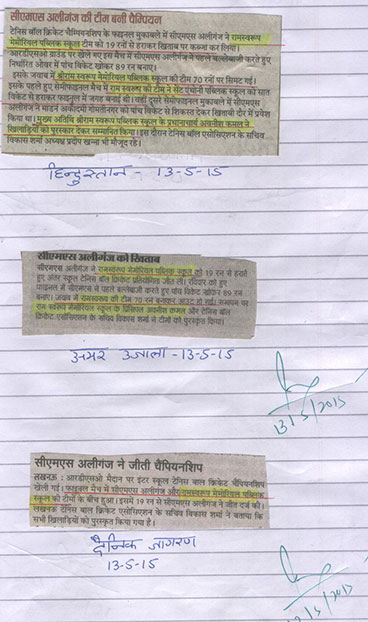 सीएमएस अलीगंज की टीम बनी चैम्पियन
टेनिस बाल क्रिकेट चैम्पियनशिप के फाइनल मुकाबले में सीएमएस अलीगंज ने रामस्वरूप
मेमोरियल पब्लिक स्कूल टीम को 19 रनों से हराकर खिताब पर कब्जा कर लिया।
आरडीएसओ ग्राउंड पर खेले गए इस मैच में सीएमएस अलीगंज ने पहले बल्लेबाजी करते हुए
निर्धारित ओवर में पांच विकेट खोकर 89 रन बनाए।
इसके जवाब में श्रीराम स्वरूप मेमोरियल पब्लिक स्कूल की टीम 70 रनों पर सिमट गई।
इसके पहले हुए सेमीफाइनल मैच में राम स्वरूप की टीम ने सेंट एंथोनी पब्लिक स्कूल को सात
विकेट से हराकर फाइनल में जगह बनाई थी। वहीं दूसरे सेमीफाइनल मुकाबले में सीएमएस
अलीगंज ने माडर्न अकादमी गोमतीनगर को पांच विकेट से शिकस्त देकर खिताबी दौर में प्रवेश
किया था। मुख्य अतिथि श्रीराम स्वरूप पब्लिक स्कूल के प्रधानाचार्य अवनीश कमल ने
खिलाड़ियों को पुरस्कार देकर सम्मानित किया। इस दौरान टेनिस बॉल एसोसिएशन के सचिव
विकास शर्मा अध्यक्ष प्रदीप खन्ना भी मौजूद रहे।
हिन्दुस्तान - 13-5-15
सीएमएस अलीगंज को खिताब
सीएमएस अलीगंज ने रामस्वरूप मेमोरियल पब्लिक स्कूल को 19 रन से हराते
हुए अंतर स्कूल टेनिस बॉल क्रिकेट प्रतियोगिता जीत ली। रविवार को हुए
फाइनल में सीएमएस ने पहले बल्लेबाजी करते हुए पांच विकेट खोकर 89 रन
बनाए। जवाब में रामस्वरूप की टीम 70 रन बनाकर आउट हो गई। समापन पर
राम स्वरूप मेमोरियल स्कूल के प्रिंसिपल अवनीश कमल और टेनिस बॉल
क्रिकेट एसोसिएशन के सचिव विकास शर्मा ने टीमों को पुरस्कृत किया।
अमर उजाला - 13-5-15
13/5/2015
सीएमएस अलीगंज ने जीती चैंपियनशिप
लखनऊ : आरडीएसओ मैदान पर इंटर स्कूल टेनिस बाल क्रिकेट चैंपियनशिप
खेली गई। फाइनल मैच में सीएमएस अलीगंज और रामस्वरूप मेमोरियल पब्लिक
स्कूल की टीमों के बीच हुआ। इसमें 19 रन से सीएमएस अलीगंज ने जीत दर्ज की।
लखनऊ टेनिस बाल क्रिकेट एसोसिएशन के सचिव विकास शर्मा ने बताया कि
सभी खिलाड़ियों को पुरस्कृत किया गया है।
दैनिक जागरण
13-5-15
13/5/2015